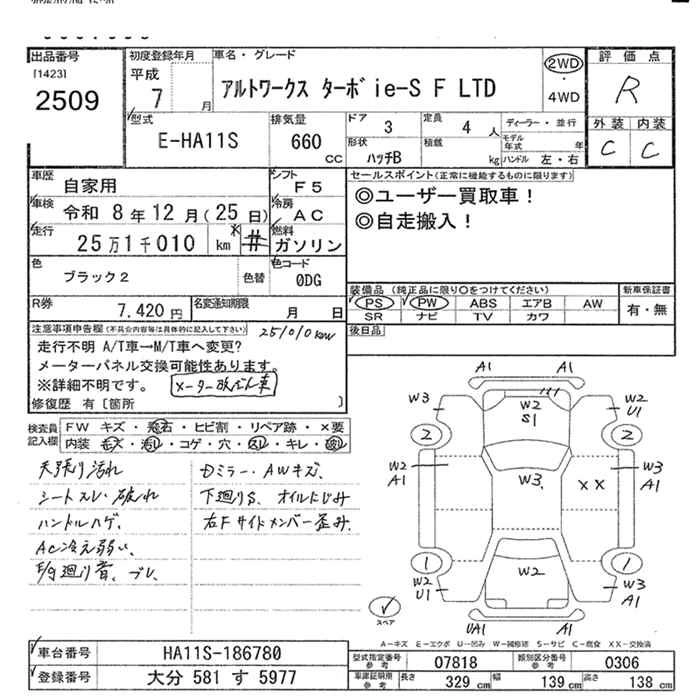 出品番号 初度登録年月 車名・グレード 評価点
[1423] 平成
2509 7 月 アルトワークス ターボie-S F LTD 2WD・4WD R
型式 排気量 ドア 3 定員 4 人 ディーラー・並行 外装 内装
E-HA11S 660 CC 形状 ハッチB 積載 kg モデル年式 年 ハンドル 左・右 C C
車歴 自家用 シフト F5 セールスポイント(正常に機能するものに限ります)
車検 令和 8年12月(25日) 冷房 AC ◎ユーザー買取車!
走行 25万1千010 km * # 燃料 ガソリン ◎自走搬入!
色 ブラック2 色替 色コード 0DG
装備品 (純正品に限り○をつけてください) 新車保証書
R券 7,420円 名変通知期限 月 日 PS PW ABS エアB AW 有・無
SR ナビ TV カワ
注意事項申告欄(不具合内容等は具体的に記入して下さい) 251010km 後日品
走行不明 A/T車→M/T車へ変更?
メーターパネル交換可能性あります。
※詳細不明です。 メーター改ざん車
修復歴 有〔箇所 〕
検査員記入欄 FW キズ・飛石・ヒビ割・リペア跡・×要
内装 キズ・汚れ・コゲ・穴・スレ・キレ・破れ
天張り汚れ
シートスレ・破れ
ハンドルハゲ、
AC冷え弱い、
F/g廻り音、ブレ、
Dミラー・AWキズ、
下廻りS、オイルにじみ
右Fサイドメンバー歪み、
A1 A1
W3 W2 S1 W2 U1
2 2
W2 A1 W3 XX W3 A1
1 1
W2 U1 W2 W3 A1
スペア UA1 A1
A-キズ E-エクボ U-凹み W-補修跡 S-サビ C-腐食 XX-交換済
車台番号 HA11S-186780 型式指定番号 参考 07818 類別区分番号 参考 0306
登録番号 大分 581 す 5977 車庫証明用 参考 長さ 329 cm 幅 139 cm 高さ 138 cm